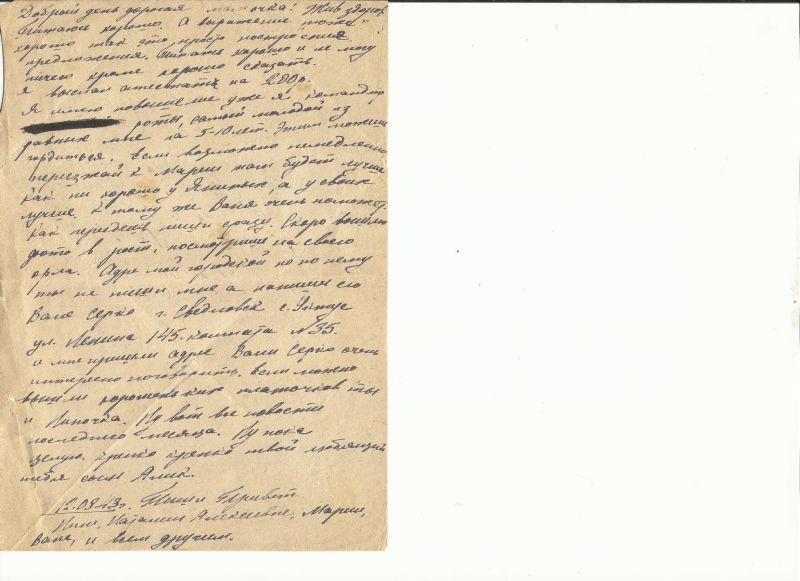 Добрый день дорогая мамочка! Жив здоров,
питаюсь хорошо. А выражение тоже
хорошо так это, просто построение
предложения. Питать хорошо и не могу
ничего кроме хорошо сказать.
Я выслал аттестат на 200р.
Я имею повышение уже я командир
роты, самый молодой из
равных мне на 5-10 лет. Этим можешь
гордиться. Если возможно немедленно
переезжай к Марии там будет лучше
как ни хорошо у Яниных, а у своих
лучше. К тому же Ваня очень поможет.
Как переедешь пиши сразу. Скоро вышлю
фото в рост, посмотришь на своего
орла. Адре мой городской но по нему
ты не пиши мне а напиши его
Вале Серко г. Свердловск с. Уктус
ул. Ленина 145. комната №35.
и мне пришли адре Вали Серко очень
интересно поговорить. Если можно
вышли хорошеньких платочков ты
и Ниночка. Ну вот все новости
последнего месяца. Ну пока
целую крепко крепко твой любящий
тебя сын Алик.
12.08.43г. Пиши Привет
Нине, Наталии Алексеевне, Марии,
Ване, и всем другим.